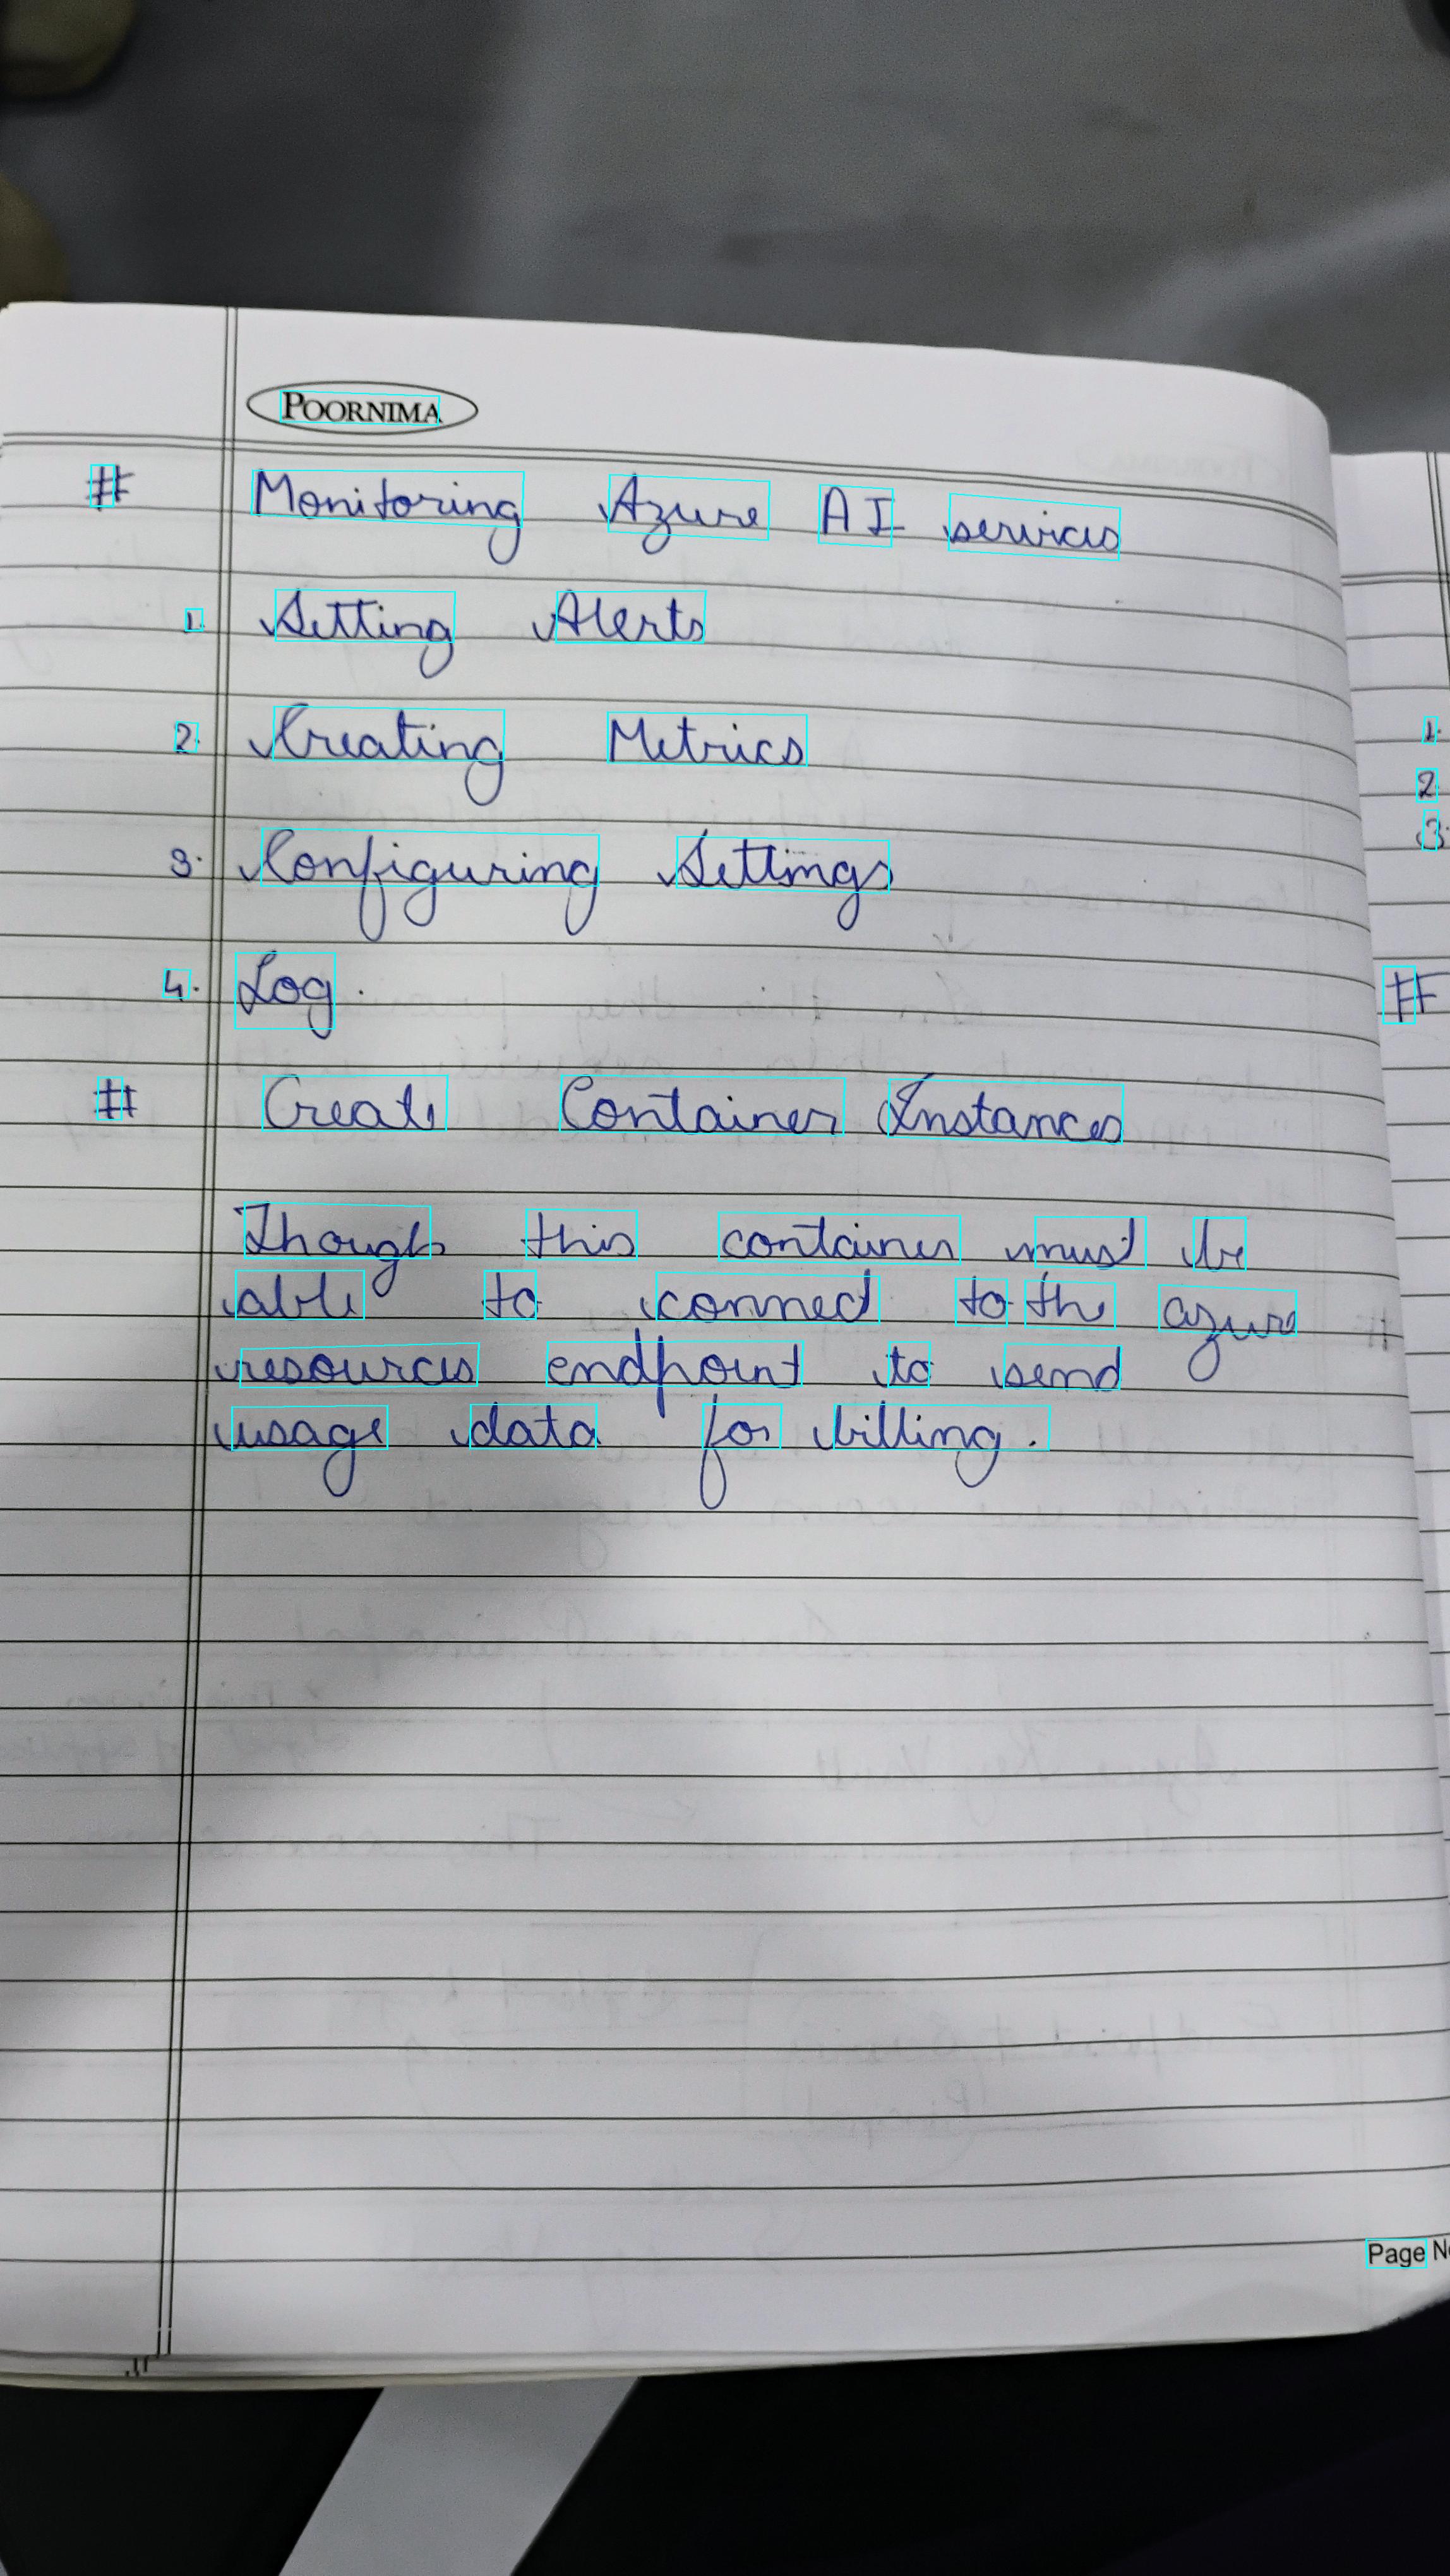 POORNIMA
# Monitoring Azure AI services
1. Setting Alerts
2. Creating Metrics
3. Configuring Settings
4. Log.
# Create Container Instances
Though this container must be
able to connect to the azure
resources endpoint to send
usage data for billing.
1.
2
3.
#
Page